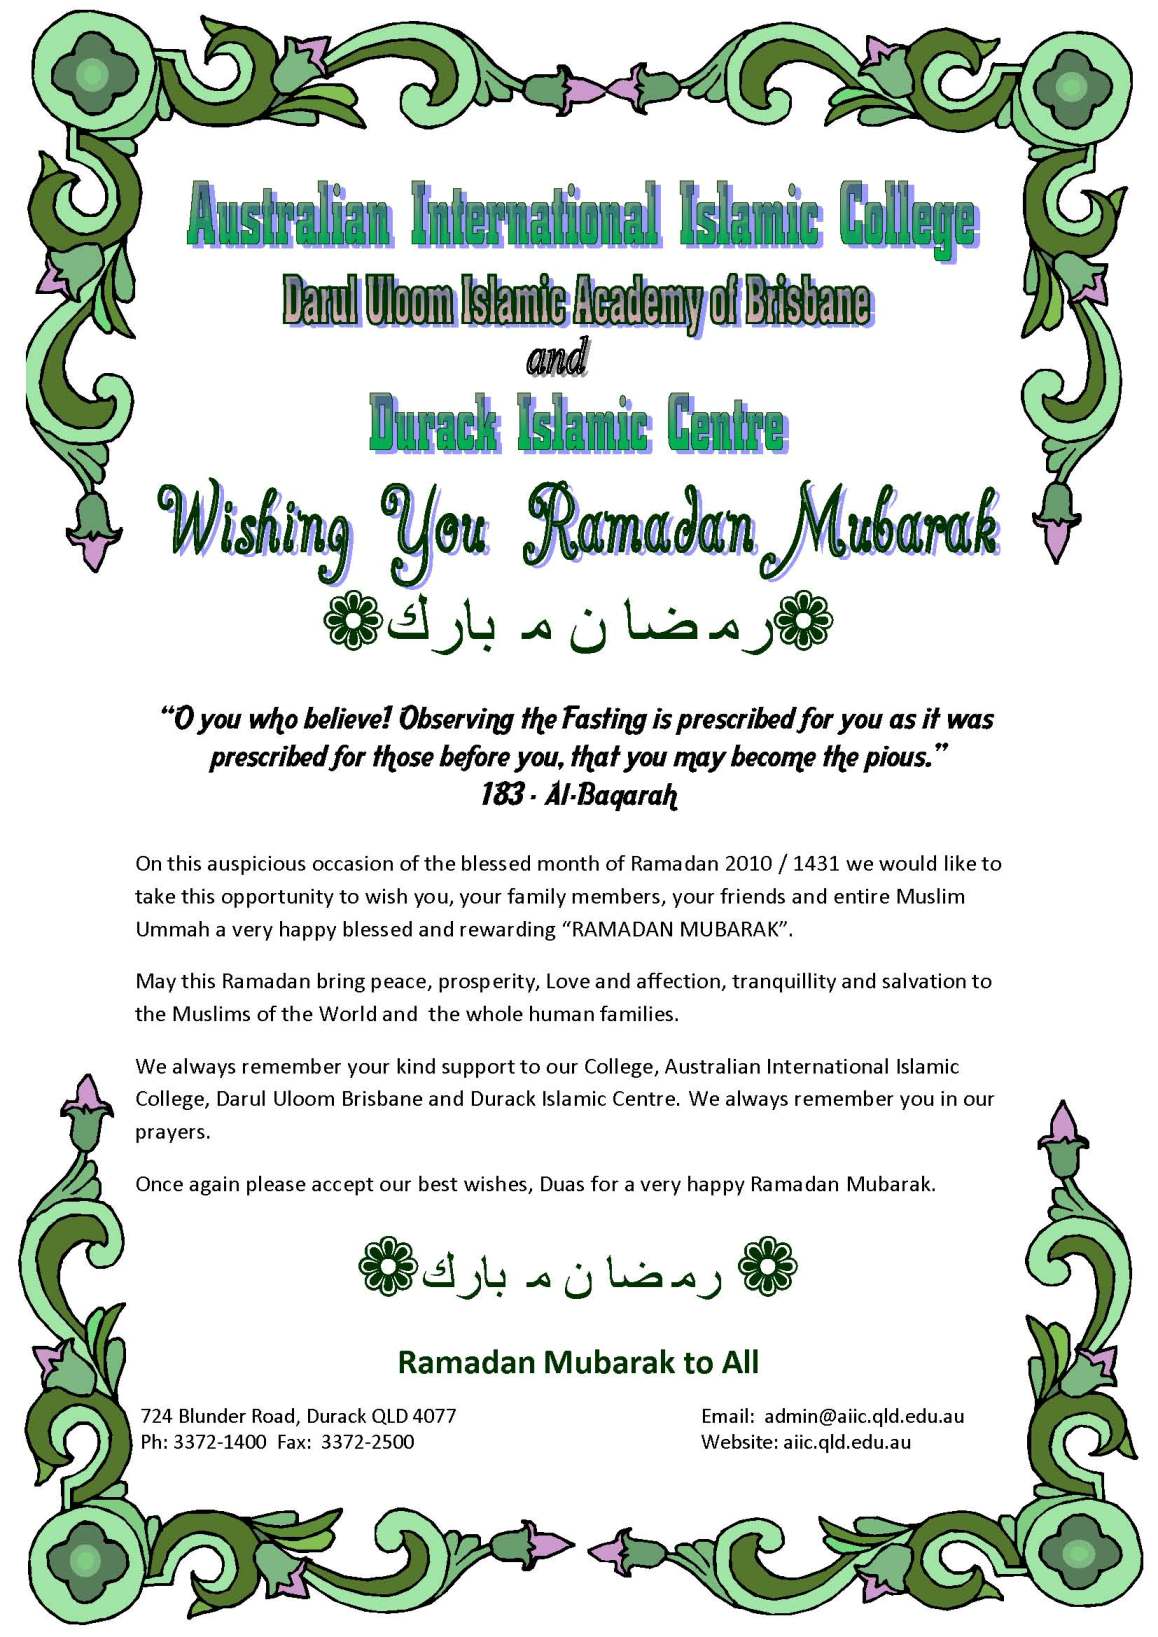 Australian International Islamic College
Darul Uloom Islamic Academy of Brisbane
and
Durack Islamic Centre
Wishing You Ramadan Mubarak
رمضان مبارك
“O you who believe! Observing the Fasting is prescribed for you as it was
prescribed for those before you, that you may become the pious.”
183 - Al-Baqarah
On this auspicious occasion of the blessed month of Ramadan 2010 / 1431 we would like to
take this opportunity to wish you, your family members, your friends and entire Muslim
Ummah a very happy blessed and rewarding “RAMADAN MUBARAK”.
May this Ramadan bring peace, prosperity, Love and affection, tranquillity and salvation to
the Muslims of the World and  the whole human families.
We always remember your kind support to our College, Australian International Islamic
College, Darul Uloom Brisbane and Durack Islamic Centre. We always remember you in our
prayers.
Once again please accept our best wishes, Duas for a very happy Ramadan Mubarak.
رمضان مبارك
Ramadan Mubarak to All
724 Blunder Road, Durack QLD 4077
Ph: 3372-1400  Fax:  3372-2500
Email:  admin@aiic.qld.edu.au
Website: aiic.qld.edu.au